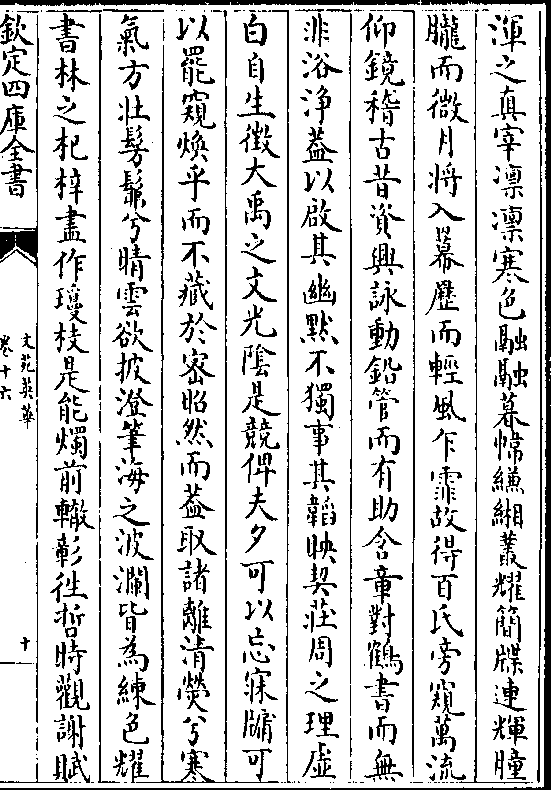 渾之真宰凛凛寒色融融暮幃縑緗叢耀簡牒連輝曈
朧而微月將入幕歷而輕風乍霏故得百氏旁窺萬流
仰鏡稽古昔資興詠動鉛管而有助含章對鶴書而無
非浴浄葢以啟其幽默不獨事其韜映契莊周之理虛
白自生徴大禹之文光陰是競俾夫夕可以忘寐牖可
以罷窺煥乎而不藏於宻昭然而葢取諸離清熒兮寒
氣方壯髣髴兮晴雲欲披澄筆海之波瀾皆為練色耀
書林之杞梓盡作瓊枝是能燭前轍彰徃哲時觀謝賦
欽定四庫全書
文苑英華
卷十六
十